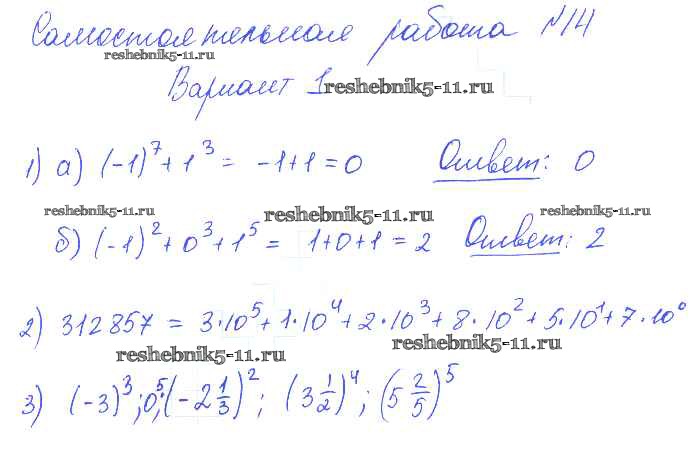 Самостоятельная работа №14
reshebnik5-11.ru
Вариант 1
reshebnik5-11.ru
1) а) (-1)⁷ + 1³ = -1+1 = 0 Ответ: 0
reshebnik5-11.ru reshebnik5-11.ru reshebnik5-11.ru
б) (-1)² + 0³ + 1⁵ = 1+0+1 = 2 Ответ: 2
2) 312857 = 3·10⁵ + 1·10⁴ + 2·10³ + 8·10² + 5·10¹ + 7·10⁰
reshebnik5-11.ru reshebnik5-11.ru
3) (-3)³; 0⁵; (-2 1/3)²; (3 1/2)⁴; (5 2/5)⁵